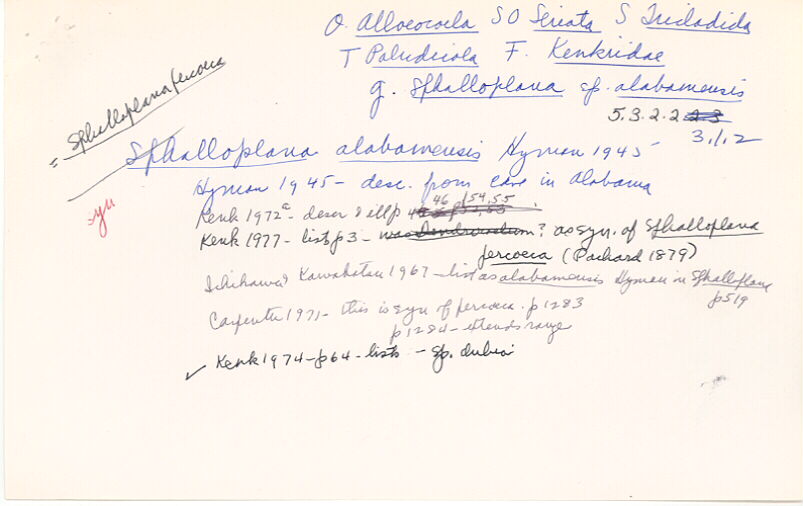 O. Alloeocoela SO Seriata S Tricladida
T Paludicola F. Kenkiidae
g. Sphalloplana sp. alabamensis
5.3.2.2
3.1.12
= Sphalloplana percoeca
Sphalloplana alabamensis Hyman 1945
syn
Hyman 1945 - desc. from cave in Alabama
Kenk 1972a - descr & ill p 46 p 54,55.
Kenk 1977 - list p3 - was dendrocoelum? as syn. of Sphalloplana
percoeca (Packard 1879)
Ichikawa & Kawakatsu 1967 - list as alabamensis Hyman in Sphalloplana
p519
Carpenter 1971 - this is syn of percoeca. p1283
p1284 - extends range
✓ Kenk 1974 - p64 - lists - sp. dubia